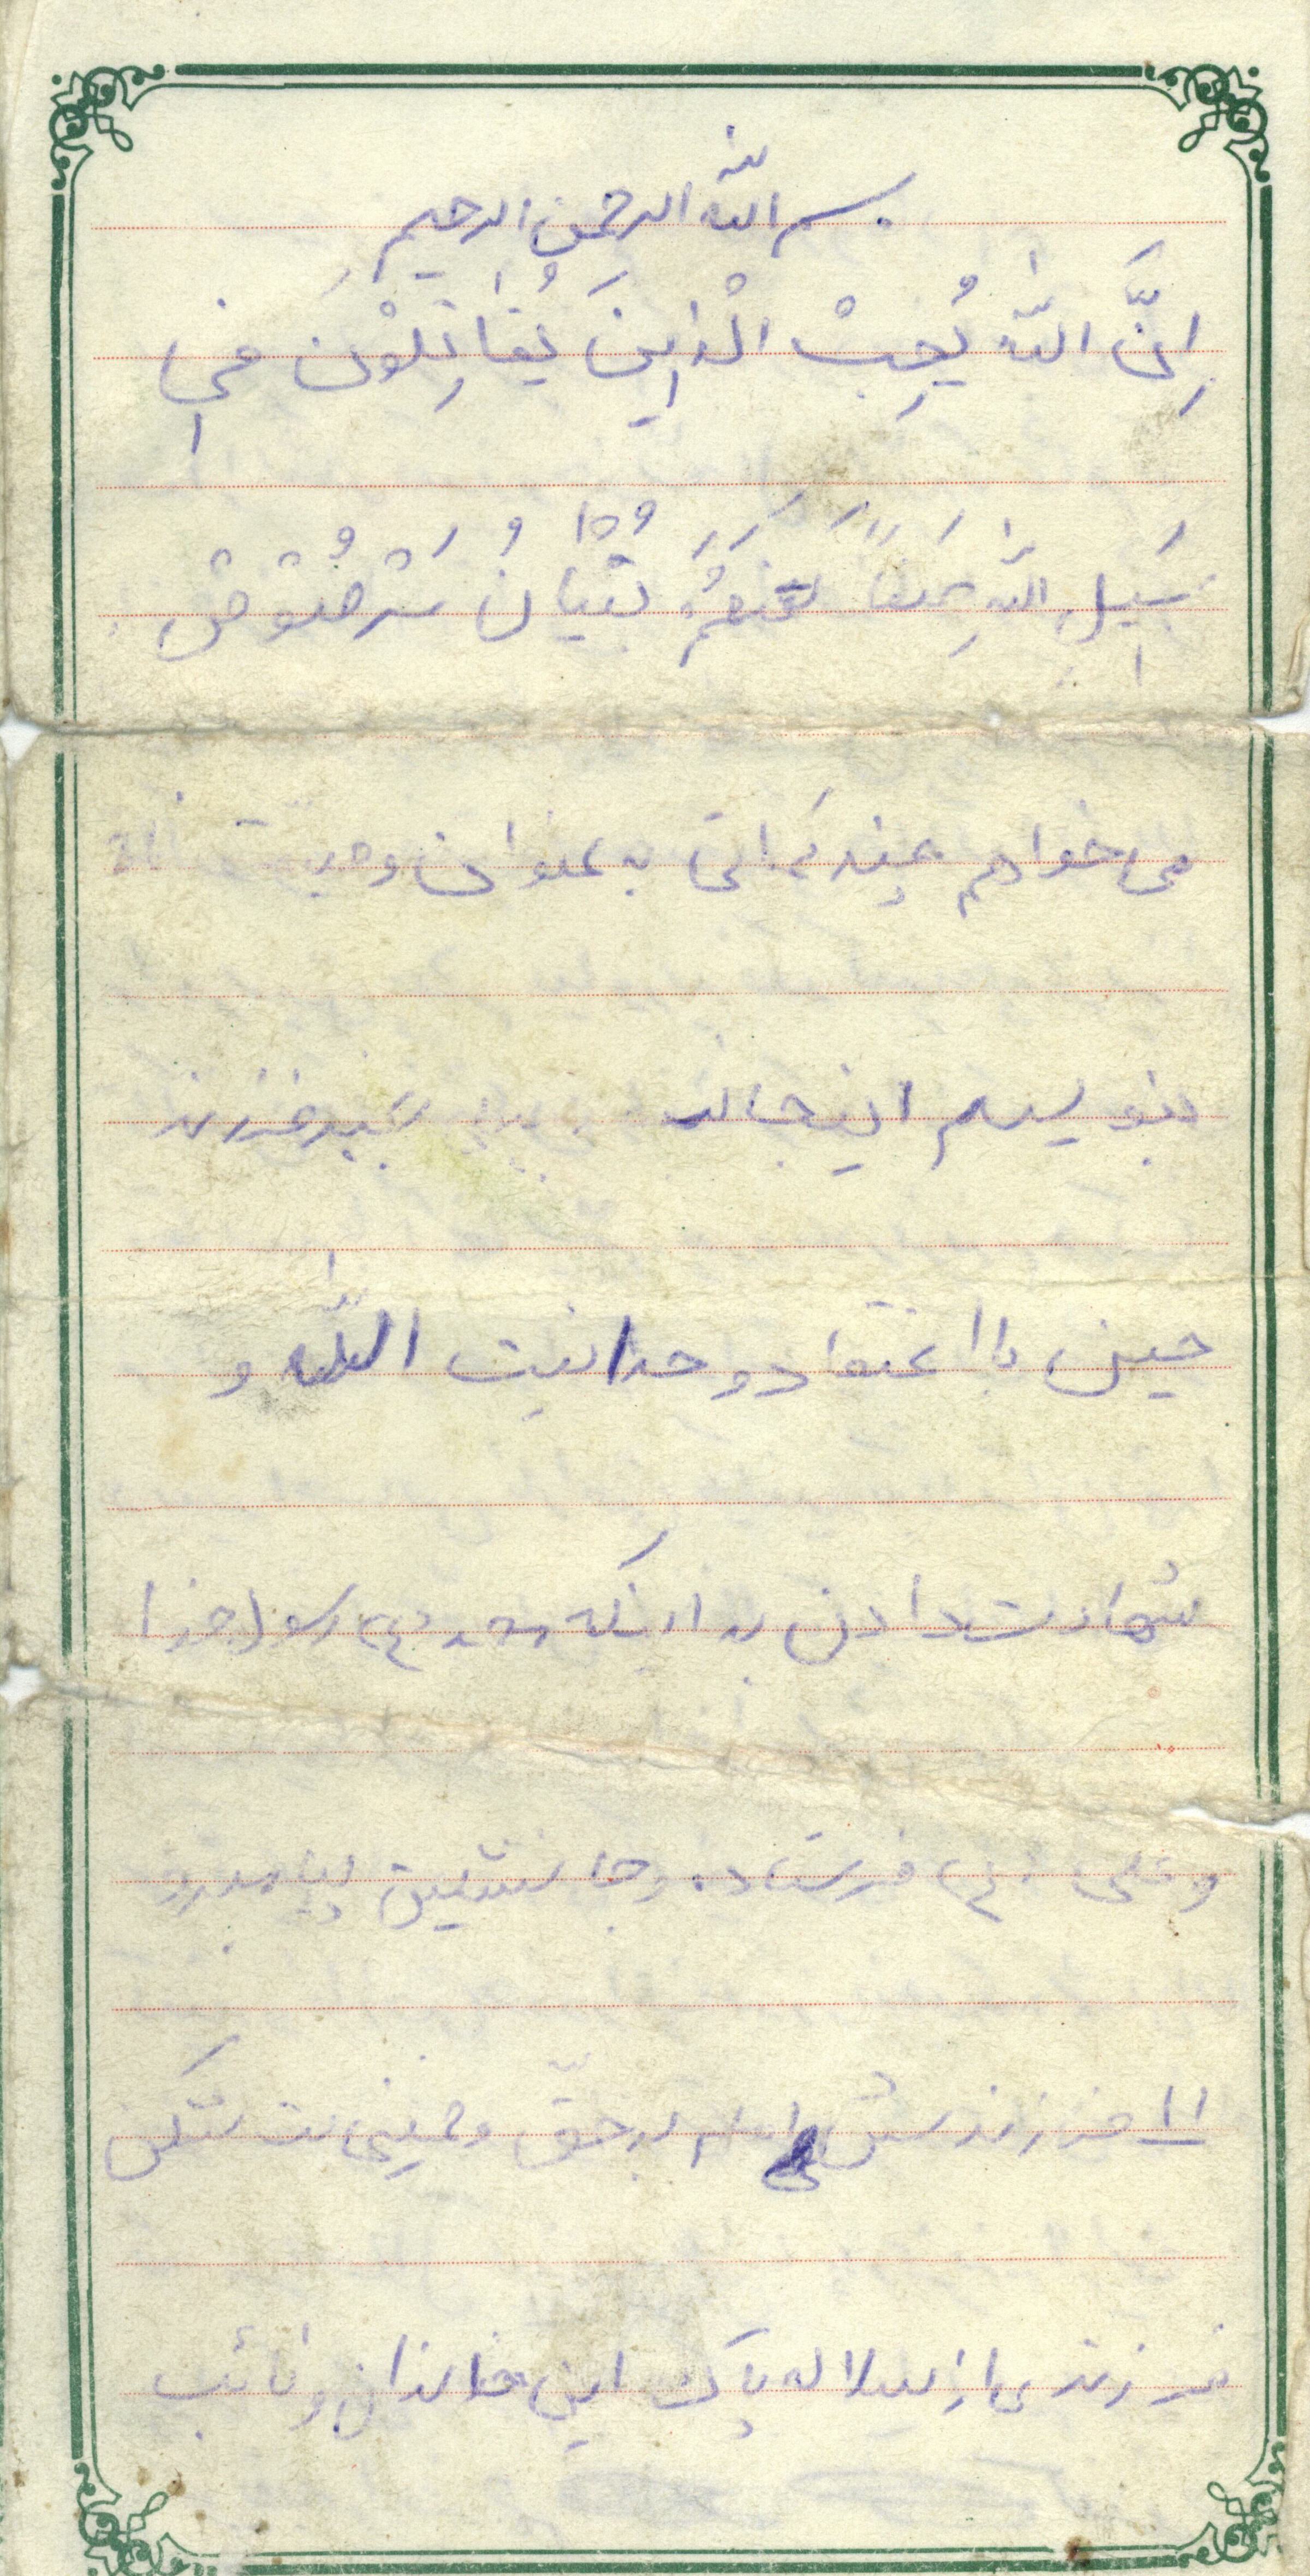 بسم الله الرحمن الرحیم
اِنَّ اللّٰه یُحِبْ الْذینَ یُقاتِلوْن فی
سَبیل اللّٰهِ صَفاً کَنَهُمْ بُنْیانُ مَرْصُوصْ
می خواهم چند کَلماتی به عنوان وصیت نامه
بنویسم اینجانب فرزند
حسین با اعتقاد وحدانیت اللّٰه و
شهادت دادن به اینکه محمد (ص) رسول خدا
و علی (ع) فرستاده و جانشین پیامبر و
۱۱ فرزندش امام برحقّ و خمینی بت شکن
فرزندی از سلاله پاک این خاندان و نائب